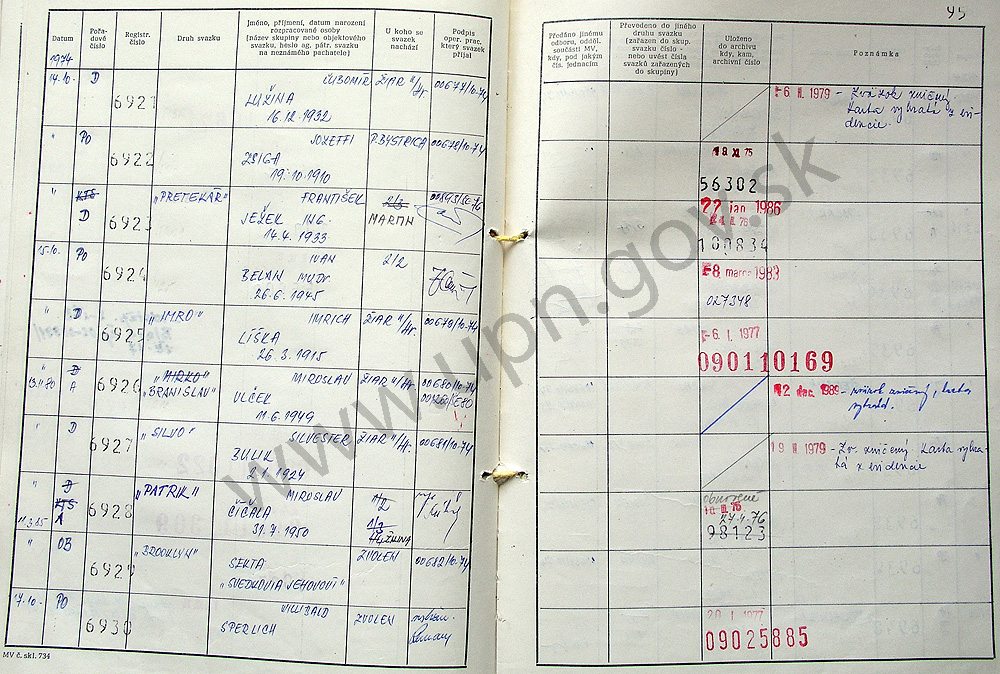 45
Datum
Pořadové číslo
Registr. číslo
Druh svazku
Jméno, příjmení, datum narození
rozpracované osoby
(název skupiny nebo objektového
svazku, heslo ag. pátr. svazku
na neznámého pachatele)
U koho se
svazek
nachází
Podpis
oper. prac.
který svazek
přijal
Předáno jinému
odboru, odděl.
součásti MV,
kdy, pod jakým
čís. jednacím
Převedeno do jiného
druhu svazku
(zařazen do skup.
svazku číslo -
nebo uvést čísla
svazků zařazených
do skupiny)
Uloženo
do archívu
kdy, kam,
archívní číslo
Poznámka
1974
14.10. D 6921 ĽUBOMÍR ŽIAR n/Hr. 00677/10-74
LUŽINA
16.12.1932
-6. II. 1979 - Zväzok zničený.
karta vybratá z evi-
dencie.
" PO 6922 JOZEFFI P.BYSTRICA 00678/10-74
ZSIGA
19.10.1910
18 XI 75
56302
" KTS "PRETEKÁR" FRANTIŠEK 2/3
D 6923 JEŽEK ING. MARTIN
14.4.1933
22 jan 1986
24. II. 76
100834
15.10. PO 6924 IVAN 2/2
BELAN MUDr.
26.6.1945
-8. marca 1983
027348
" D 6925 "IMRO" IMRICH ŽIAR n/Hr. 00679/10-74
LÍŠKA
26.3.1915
-6. I. 1977
090110169
" D "MIRKO" MIROSLAV ŽIAR n/Hr. 00680/10-74
13.11.80 A 6926 "BRANISLAV" VLČEK
11.6.1949
12. dec. 1989 - zväzok zničený, karta
vybratá.
" D 6927 "SILVO" ŠILVESTER ŽIAR n/Hr. 00681/10-74
BULIK
2.1.1924
19 II 1979 - Zv. zničený karta vybra-
tá z evidencie
" D "PATRIK" MIROSLAV 1/2
KTS 6928 ČIČALA 1/3
11.3.85 A 31.7.1950 ŽILINA
obnovené
10. III. 76
27.4.76
98123
" OB 6929 "BROOKLYN" ZVOLEN 00682/10-74
SEKTA
"SVEDKOVIA JEHOVOVI"
17.10. PO 6930 VILIBALD ZVOLEN
SPERLICH
20. I. 1977
09025885
MV č. skl. 734
www.upn.gov.sk